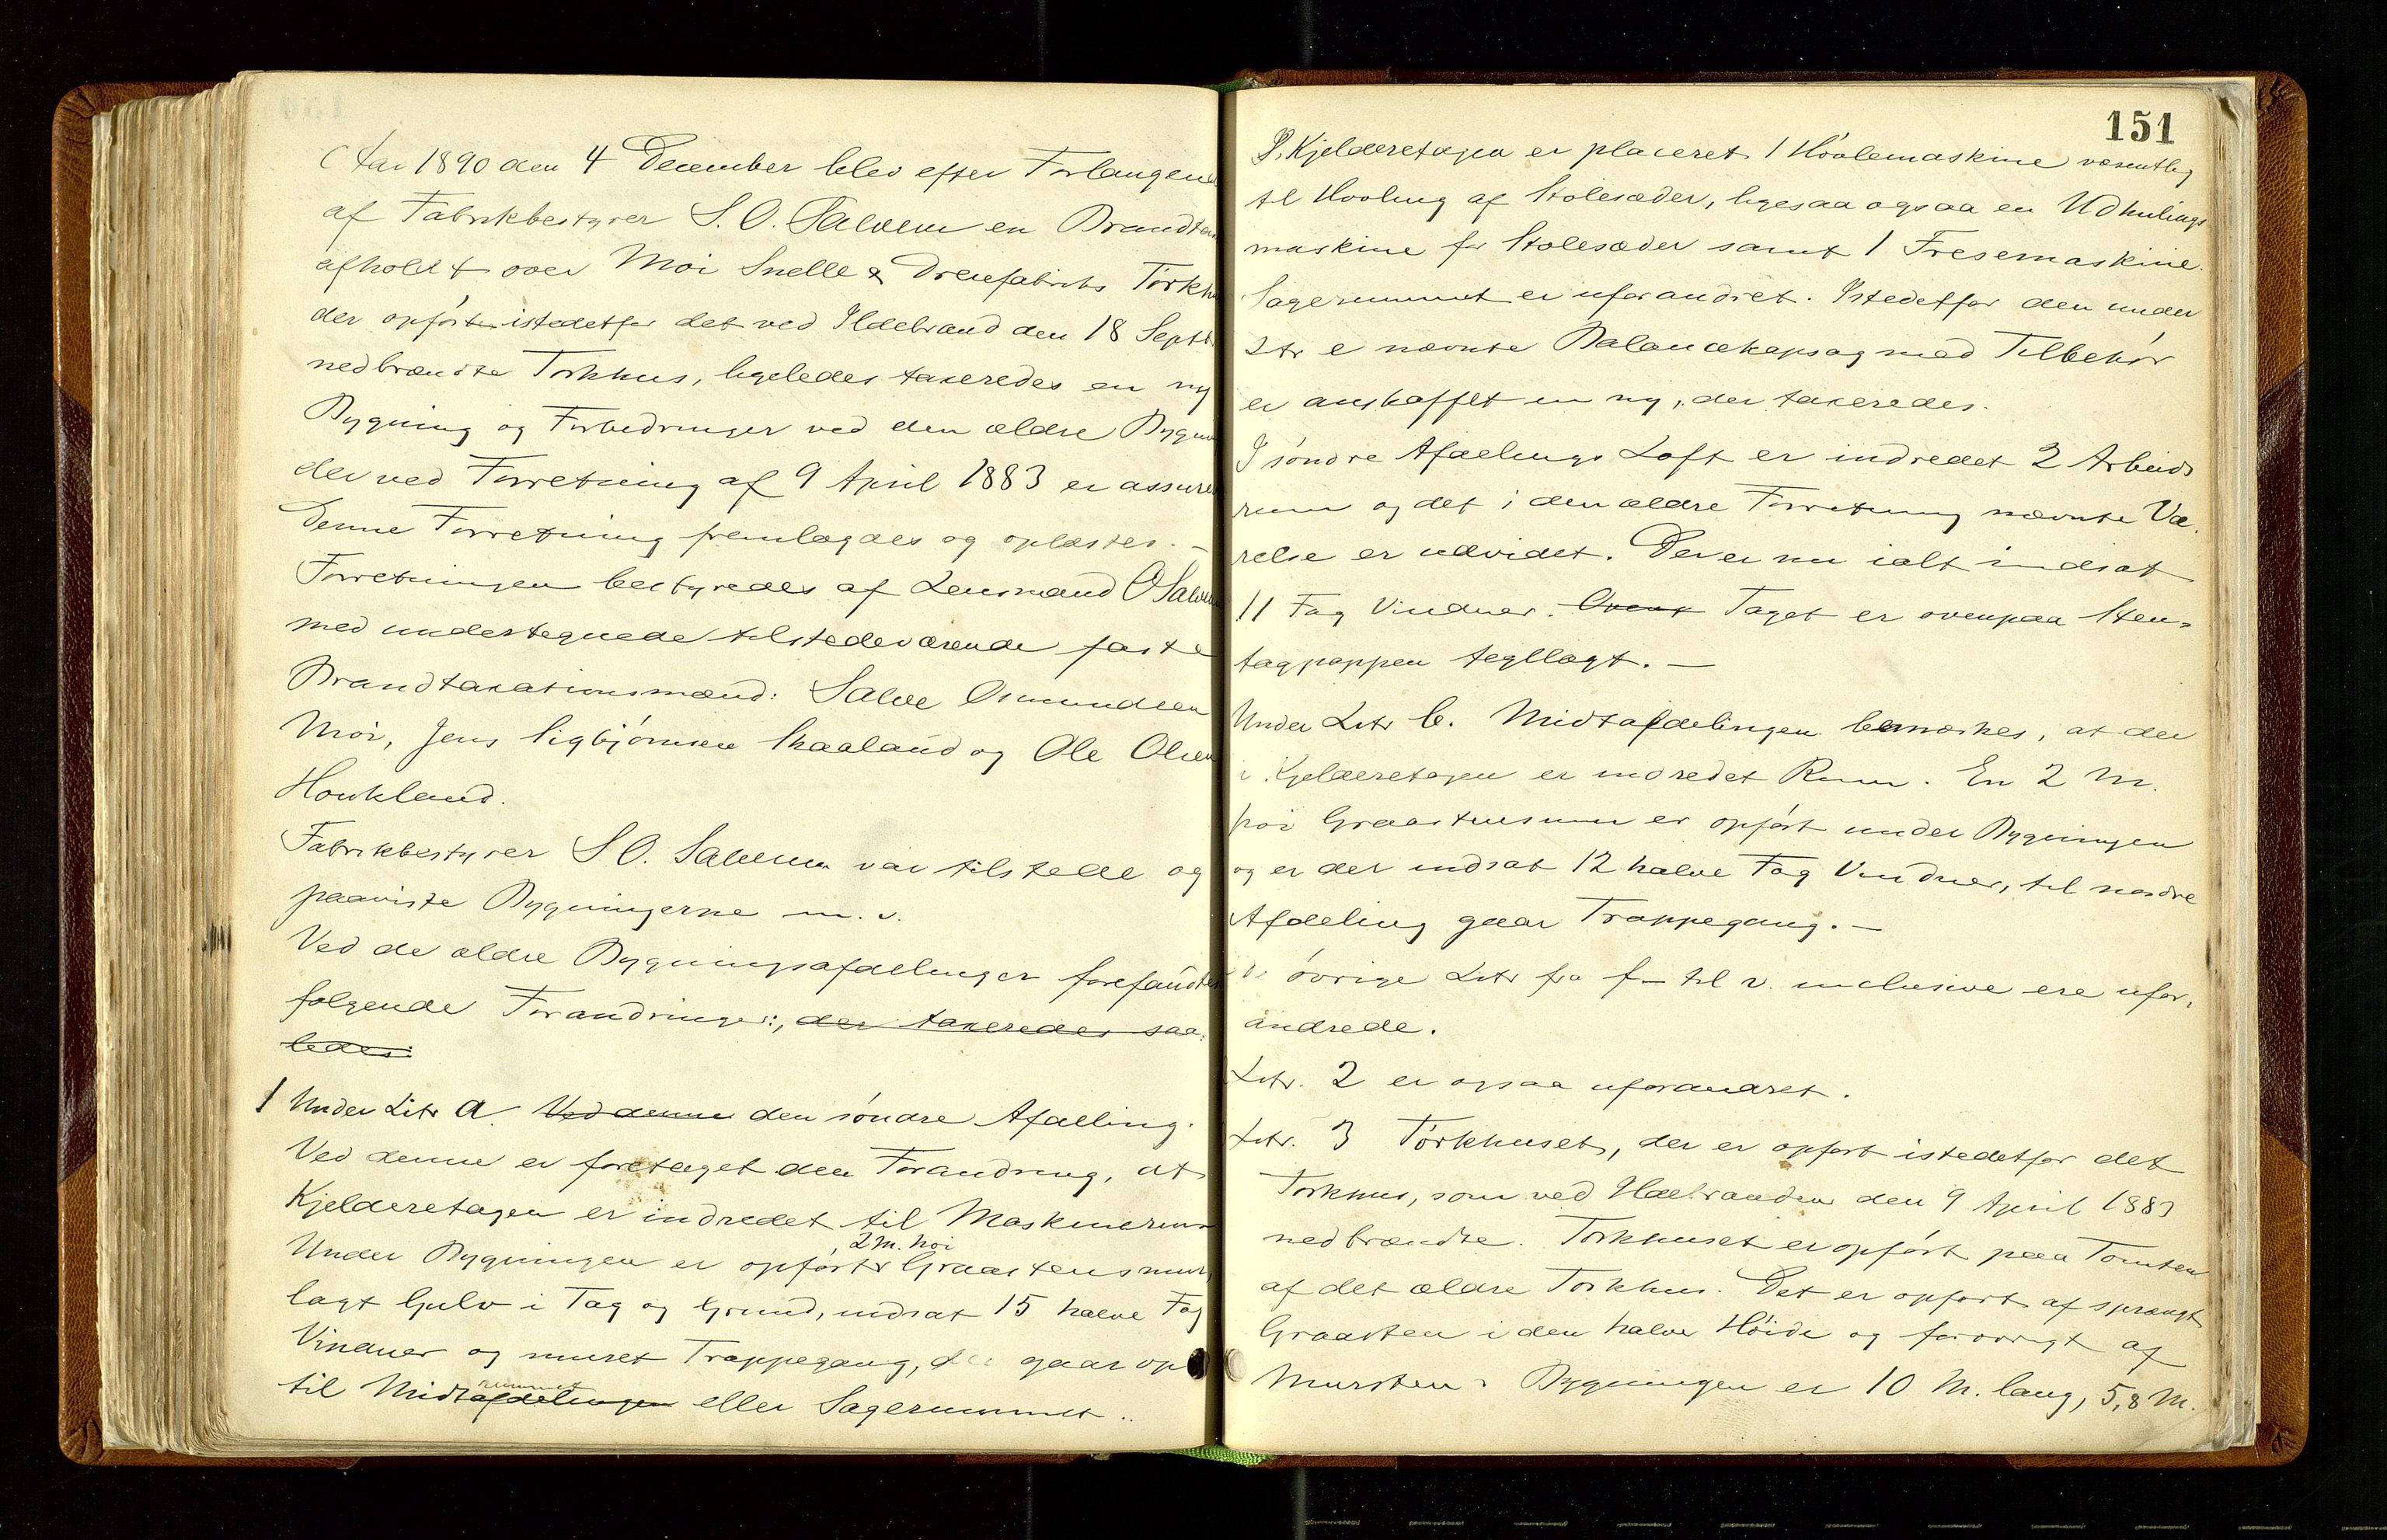 Aar 1890 den 4 December blev efter Forlangende
af Fabrikbestyrer S. O. Salvesen en Brandtax
afholdt over Moi Snelle & Dreiefabriks Tørkhu
der opført istedetfor det ved Ildebrand den 18 Septbr
nedbrændte Tørkhus, ligeledes taxeredes en ny
Bygning og Forbedringer ved den ældre Bygn
der ved Forretning af 9 April 1883 er assure
Denne Forretning fremlagdes og oplæstes. —
Forretningen bestyredes af Lensmand O Salve
med undertegnede tilstedeværende faste
Brandtaxationsmænd: Salve Osmundsen
Moi, Jens Sigbjørnsen Skaaland og Ole Olsen
Houkland.
Fabrikbestyrer S O. Salvesen var tilstede og
paaviste Bygningerne m. v.
Ved de ældre Bygningsafdelinger forefandtes
følgende Forandringer:, der taxeredes saa-
ledes:
1 Under Litr a. Ved denne den søndre Afdeling.
Ved denne er foretaget den Forandring, at
Kjelderetagen er indredet til Maskinerum
, 2 M. høi
Under Bygningen er opført Graastensmur,
lagt Gulv i Tag og Grund, indsat 15 halve Fag
Vinduer og muret Trappegang, der gaar op
rummet
til Midtafdelingen eller Sagerummet..
151
I Kjelderetagen er placeret 1 Høvlemaskine væsentlig
til Hvoling af Stolesæder, ligesaa ogsaa en Udhulings
maskine for Stolesæder samt 1 Fresemaskine.
Sagerummet er uforandret. Istedetfor den under
Litr e nævnte Balancekapsag med Tilbehør
er anskaffet en ny, der taxeredes.
I søndre Afdelings Loft er indredet 2 Arbeids
rum og det i den ældre Forretning nævnte Væ-
relse er udvidet. Der er nu ialt indsat
11 Fag Vinduer. Ovent Taget er ovenpaa Sten-
tagpappen tegllagt. —
Under Litr b. Midtafdelingen bemærkes, at der
i Kjelderetagen er indredet Rum. En 2 M.
høi Graastensmur er opført under Bygningen
og er der indsat 12 halve Fag Vinduer, til nordre
Afdeling gaar Trappegang. —
De øvrige Litr fra f — til v. inclusive ere ufor-
andrede.
Litr. 2 er ogsaa uforandret.
Litr. 3 Tørkhuset, der er opført istedetfor det
Tørkhus, som ved Ildebranden den 9 April 1883
nedbrændte. Tørkhuset er opført paa Tomten
af det ældre Tørkhus. Det er opført af sprængt
Graasten i den halve Høide og forøvrigt af
Mursten. Bygningen er 10 M. lang, 5,8 M.